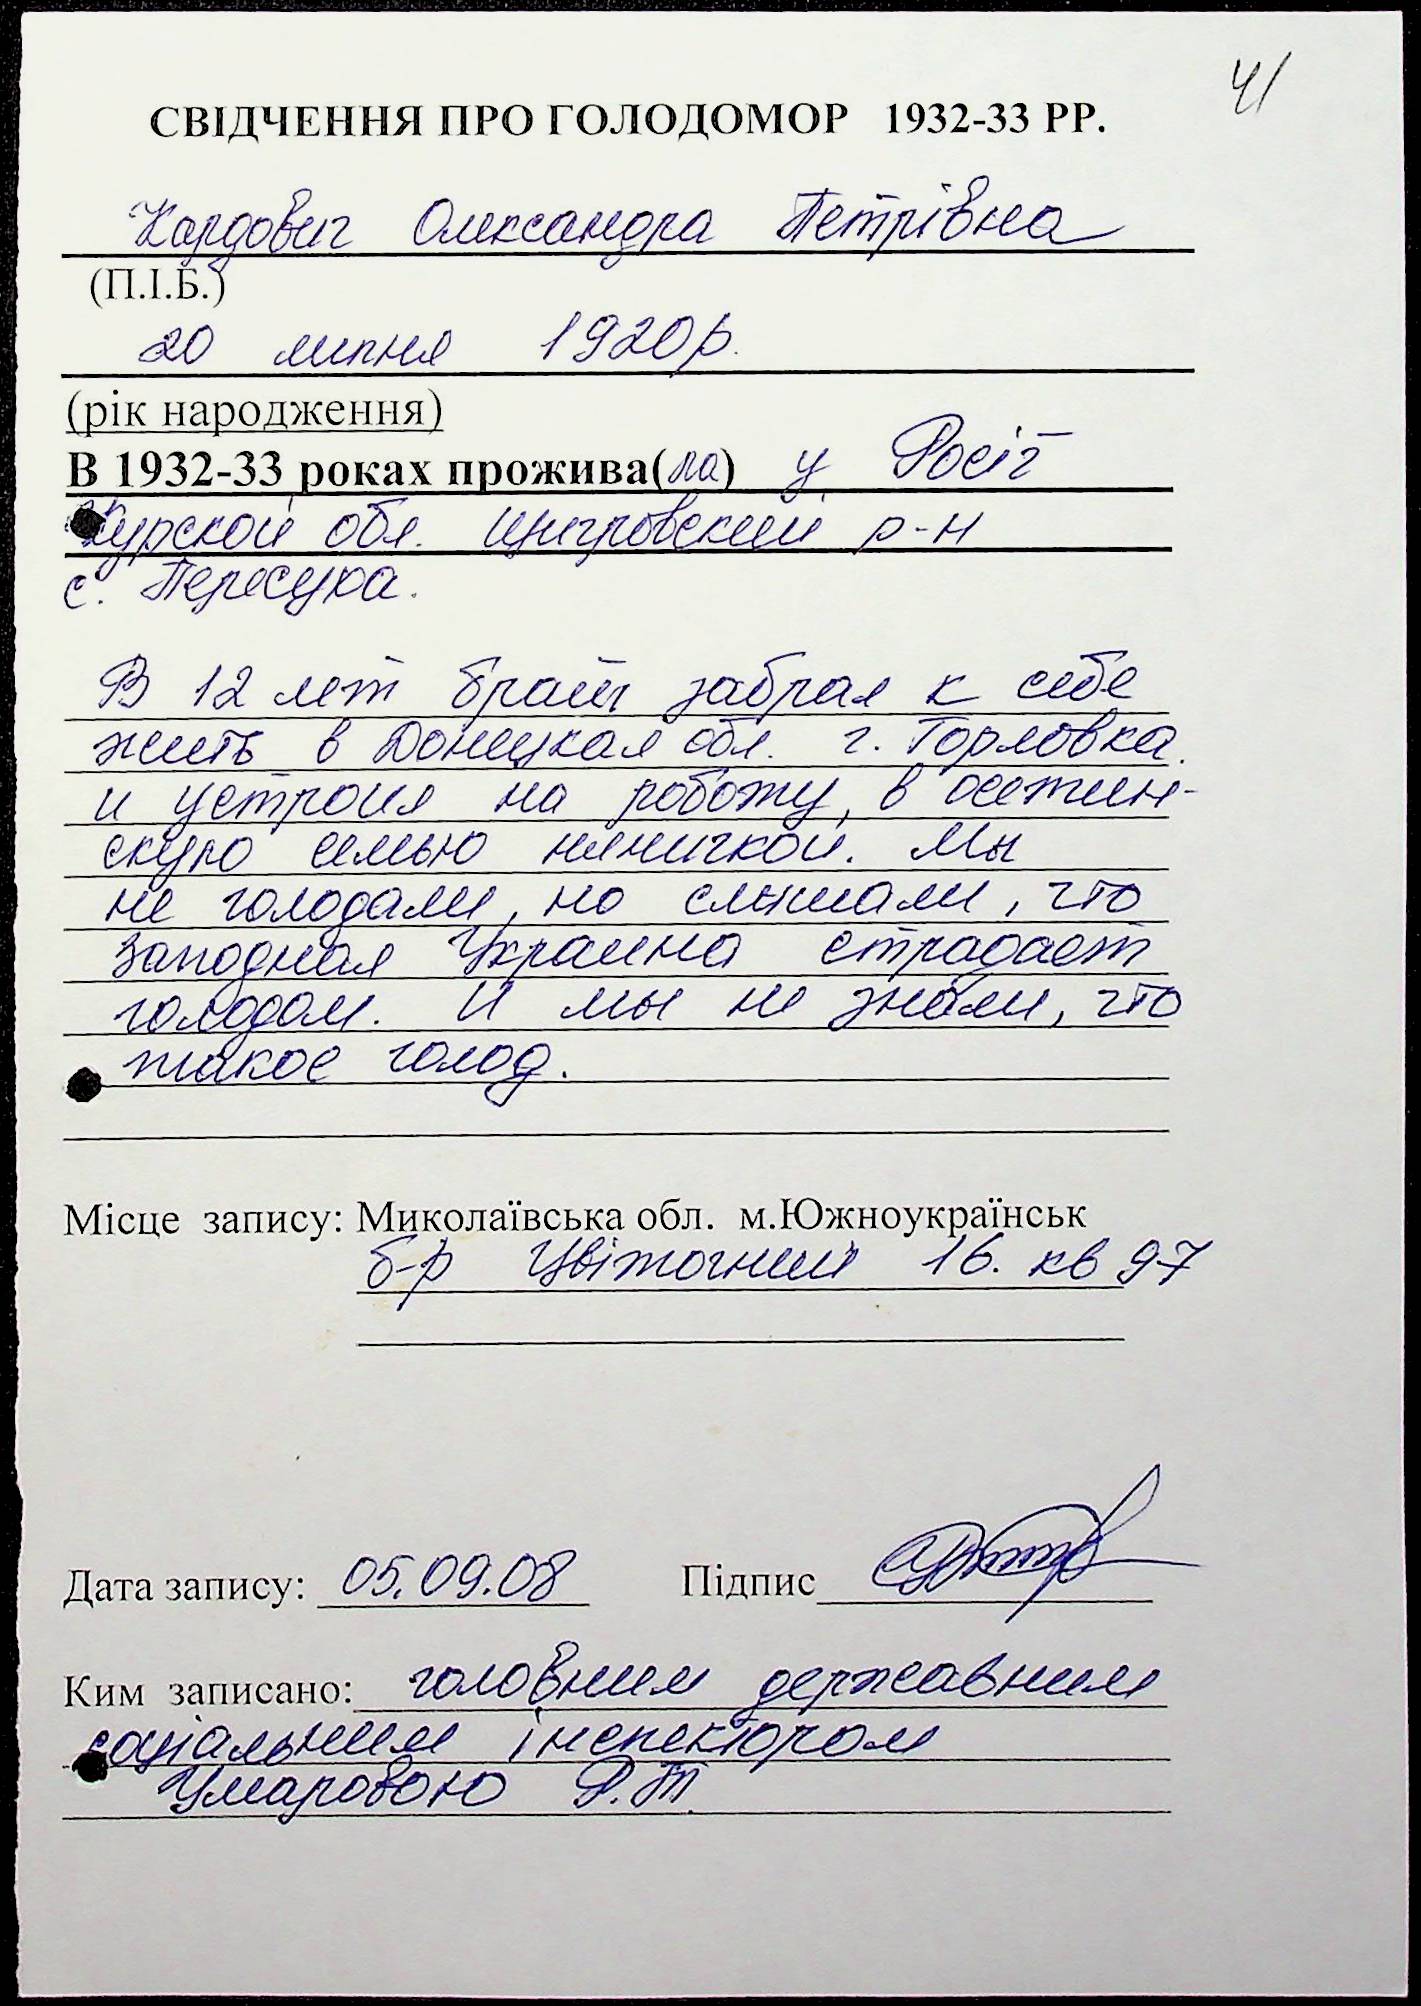 41
СВІДЧЕННЯ ПРО ГОЛОДОМОР 1932-33 РР.
Кардович Олександра Петрівна
(П.І.Б.)
20 липня 1920р.
(рік народження)
В 1932-33 роках прожива(ла) у Росії
Курской обл. Щигровский р-н
с. Пересуха.
В 12 лет брат забрал к себе
жить в Донецкая обл. г. Горловка
и устроил на роботу, в осетин-
скую семью нянечкой. Мы
не голодали, но слышали, что
Западная Украина страдает
голодом. И мы не знали, что
такое голод.
Місце запису: Миколаївська обл. м.Южноукраїнськ
б-р Цвіточний 16. кв 97
Дата запису: 05.09.08 Підпис
Ким записано: головним державним
соціальним інспектором
Умаровою Р.Т.